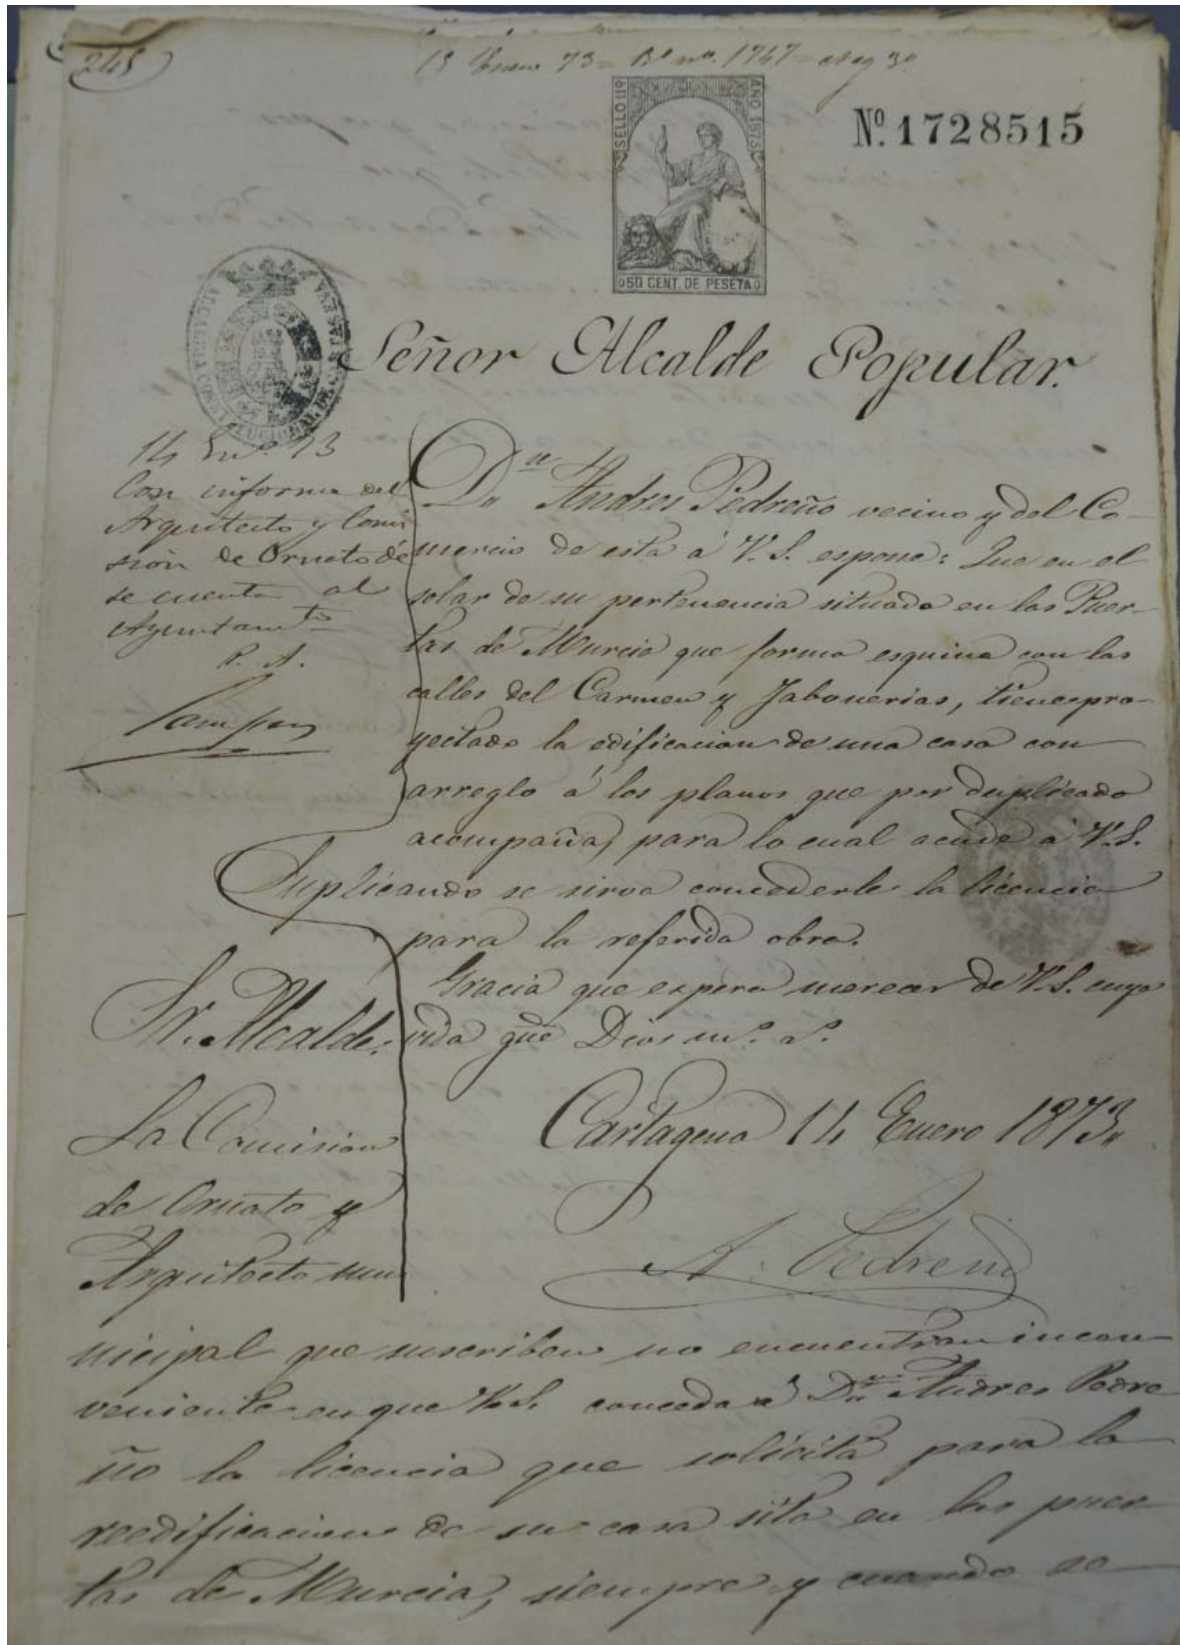 245
15 Enero 73 = Bº nº. 1747 = Neg 3º
SELLO 11º
AÑO 1873
50 CENT. DE PESETA
Nº. 1728515
ALCALDIA CONSTITUCIONAL DE
Señor Alcalde Popular.
14 Enº 73
Con informe del
Arquitecto y Comi
sion de Ornato dé
se cuenta al
Ayuntamto
P. A.
Dn Andres Pedreño vecino y del Co-
mercio de esta á V. S. espone: Que en el
solar de su pertenencia situado en las Puer-
tas de Murcia que forma esquina con las
calles del Carmen y Jabonerias, tiene pro-
yectado la edificacion de una casa con
arreglo á los planos que por duplicado
acompaña, para lo cual acude á V. S.
Suplicando se sirva concederle la licencia
para la referida obra.
Gracia que espera merecer de V. S. cuya
vida gue Dios ms. as.
Cartagena 14 Enero 1873.
A. Pedreño
Sr. Alcalde:
La Comision
de Ornato y
Arquitecto mu
nicipal que suscriben no encuentran incon
veniente en que V. S. conceda á Dn Andres Pedre
ño la licencia que solicita para la
reedificacion de su casa sita en las puer
tas de Murcia, siempre y cuando se